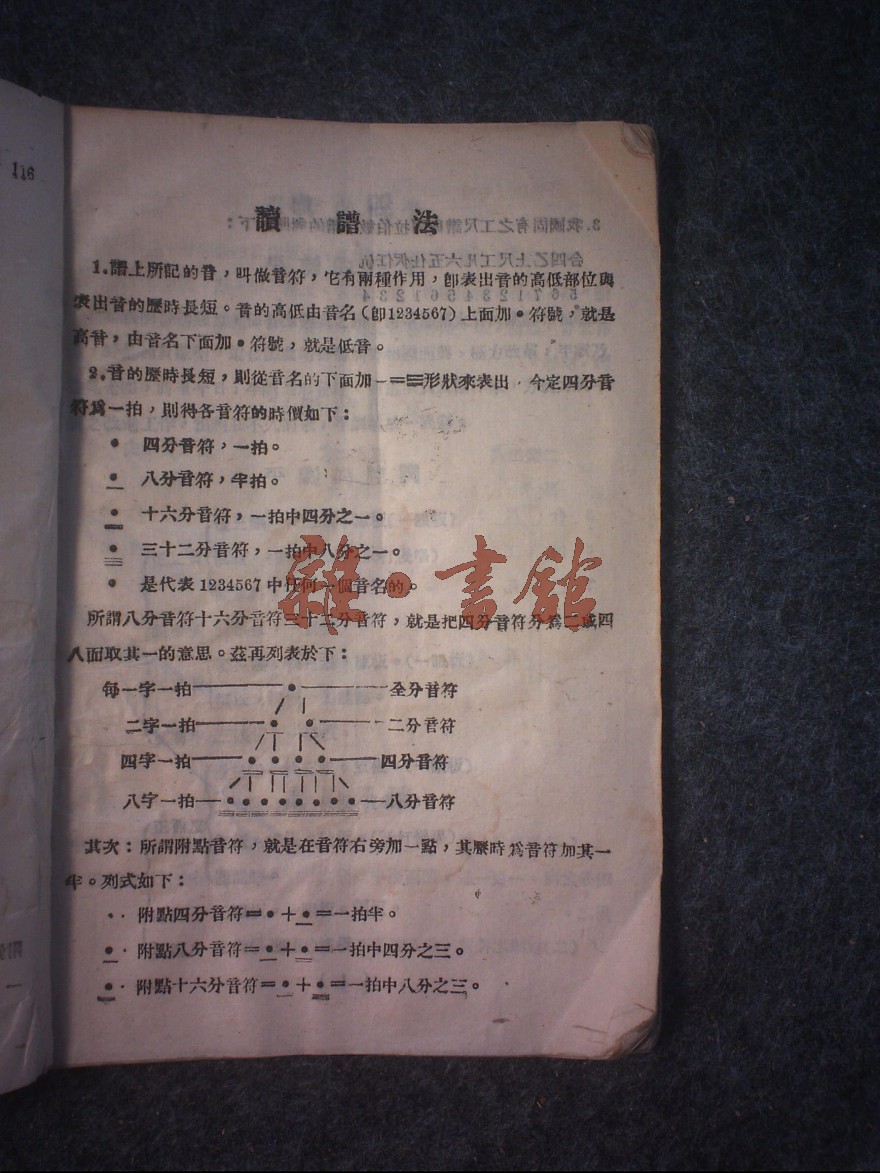 116
讀譜法
1.譜上所記的音，叫做音符，它有兩種作用，卽表出音的高低部位與
表出音的歷時長短。音的高低由音名（卽1234567）上面加•符號，就是
高音，由音名下面加•符號，就是低音。
2.音的歷時長短，則從音名的下面加一二三形狀來表出，今定四分音
符爲一拍，則得各音符的時價如下：
• 四分音符，一拍。
• 八分音符，半拍。
• 十六分音符，一拍中四分之一。
• 三十二分音符，一拍中八分之一。
• 是代表1234567中任何一個音名的。
雜•書館
所謂八分音符十六分音符三十二分音符，就是把四分音符分爲二或四
八面取其一的意思。茲再列表於下：
每一字一拍——•——全分音符
二字一拍——• •——二分音符
四字一拍——• • • •——四分音符
八字一拍—• • • • • • • •—八分音符
其次：所謂附點音符，就是在音符右旁加一點，其歷時爲音符加其一
半。列式如下：
•· 附點四分音符＝•＋•＝一拍半。
•· 附點八分音符＝•＋•＝一拍中四分之三。
•· 附點十六分音符＝•＋•＝一拍中八分之三。